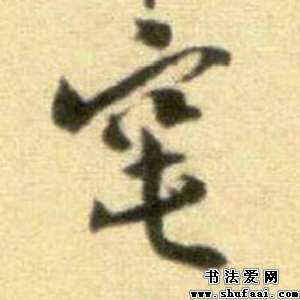 窀
书法爱网
www.shufaai.com